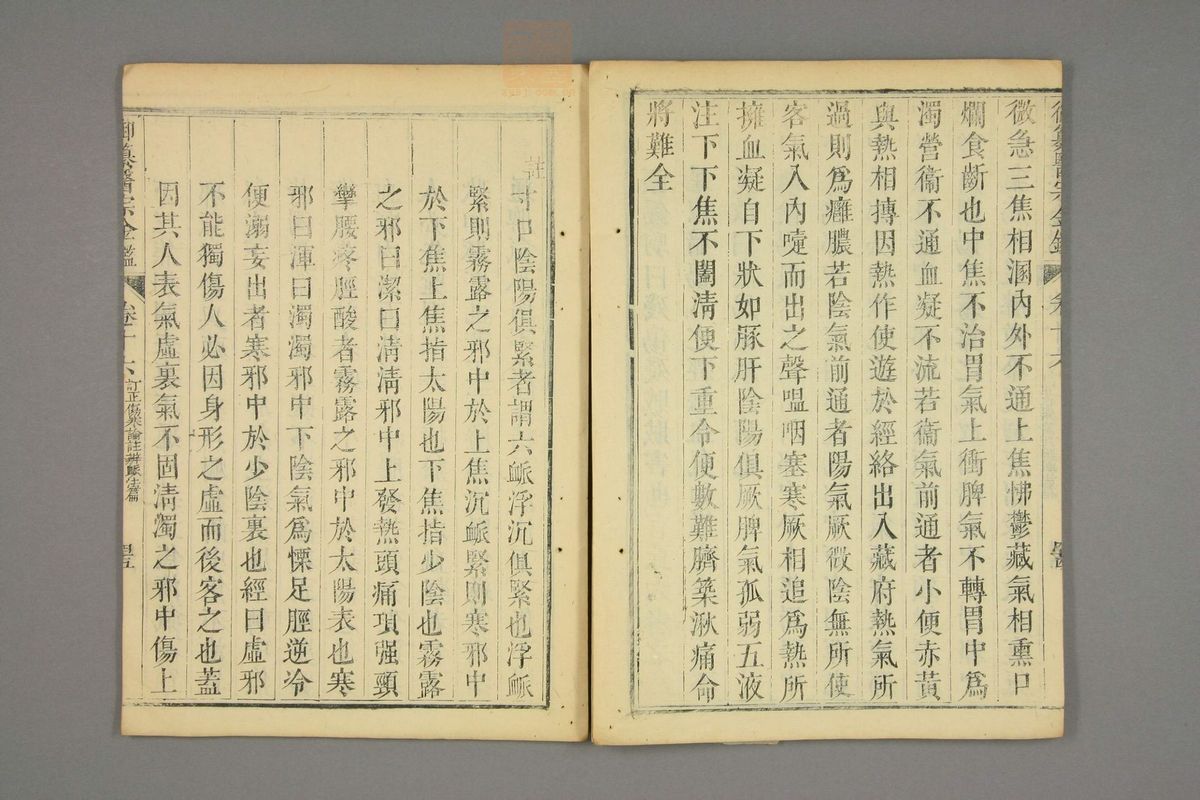 微急三焦相溷內外不通上焦怫鬱藏氣相熏口
爛食斷也中焦不治胃氣上衝脾氣不轉胃中為
濁營衞不通血凝不流若衞氣前通者小便赤黃
與熱相摶因熱作使遊於經絡出入藏府熱氣所
過則為癰膿若陰氣前通者陽氣厥微陰無所使
客氣入內嚏而出之聲嗢咽塞寒厥相追為熱所
擁血凝自下狀如豚肝陰陽俱厥脾氣孤弱五液
注下下焦不闔清便下重令便數難臍築湫痛命
將難全
註寸口陰陽俱緊者謂六脈浮沉俱緊也浮脈
緊則霧露之邪中於上焦沉脈緊則寒邪中
於下焦上焦指太陽也下焦指少陰也霧露
之邪曰潔曰清清邪中上發熱頭痛項强頸
攣腰疼脛酸者霧露之邪中於太陽表也寒
邪曰渾曰濁濁邪中下陰氣為慄足脛逆冷
便溺妄出者寒邪中於少陰裏也經曰虛邪
不能獨傷人必因身形之虛而後客之也蓋
因其人表氣虛裏氣不固清濁之邪中傷上
御纂醫宗金鑑
卷十六
訂正傷寒論註辨脈法篇